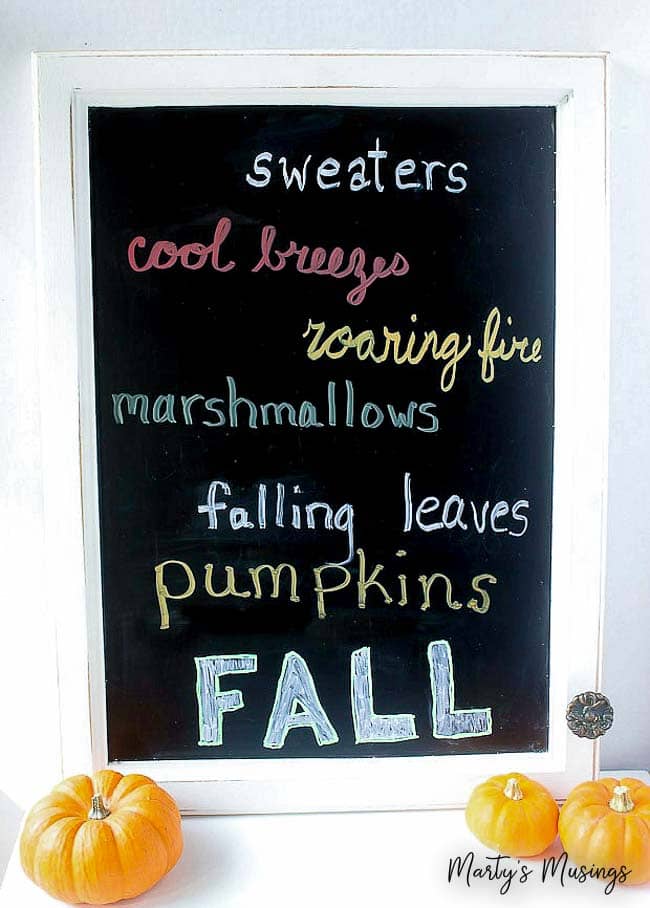 sweaters
cool breezes
roaring fire
marshmallows
falling leaves
pumpkins
FALL
Marty's Musings